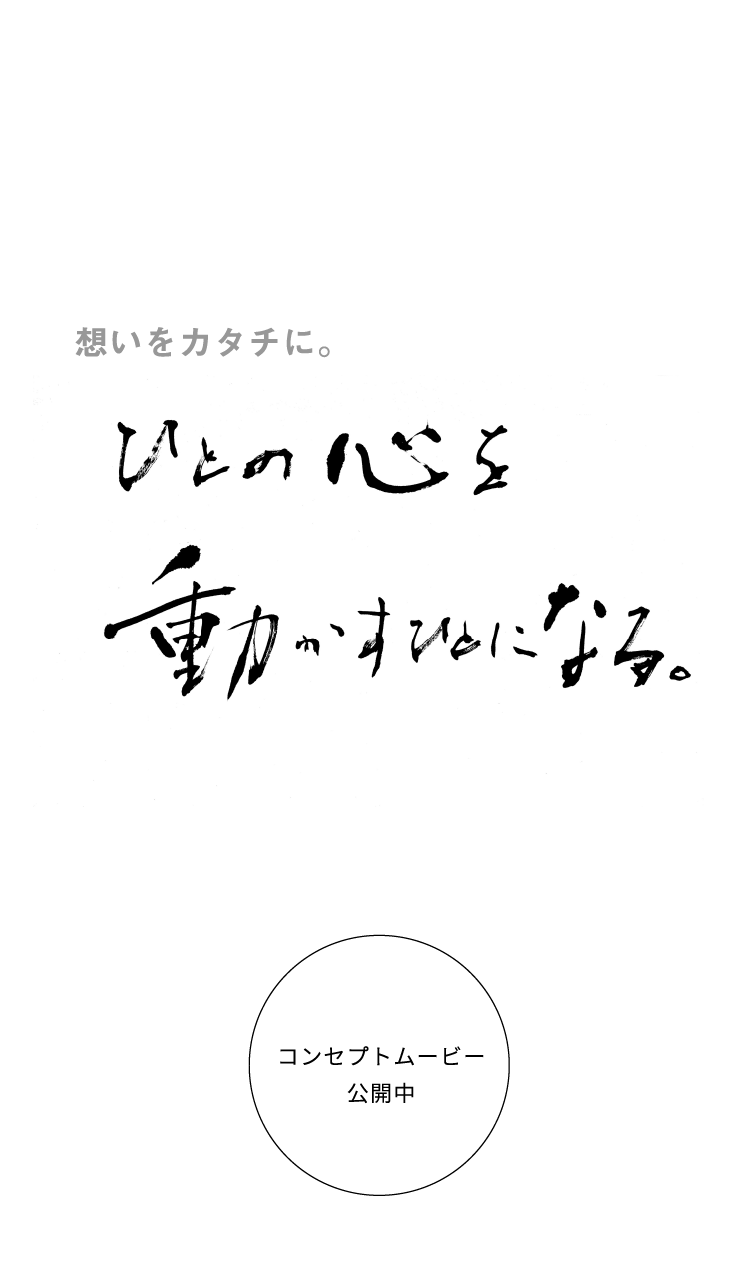 想いをカタチに。
ひとの心を
動かすひとになる。
コンセプトムービー
公開中